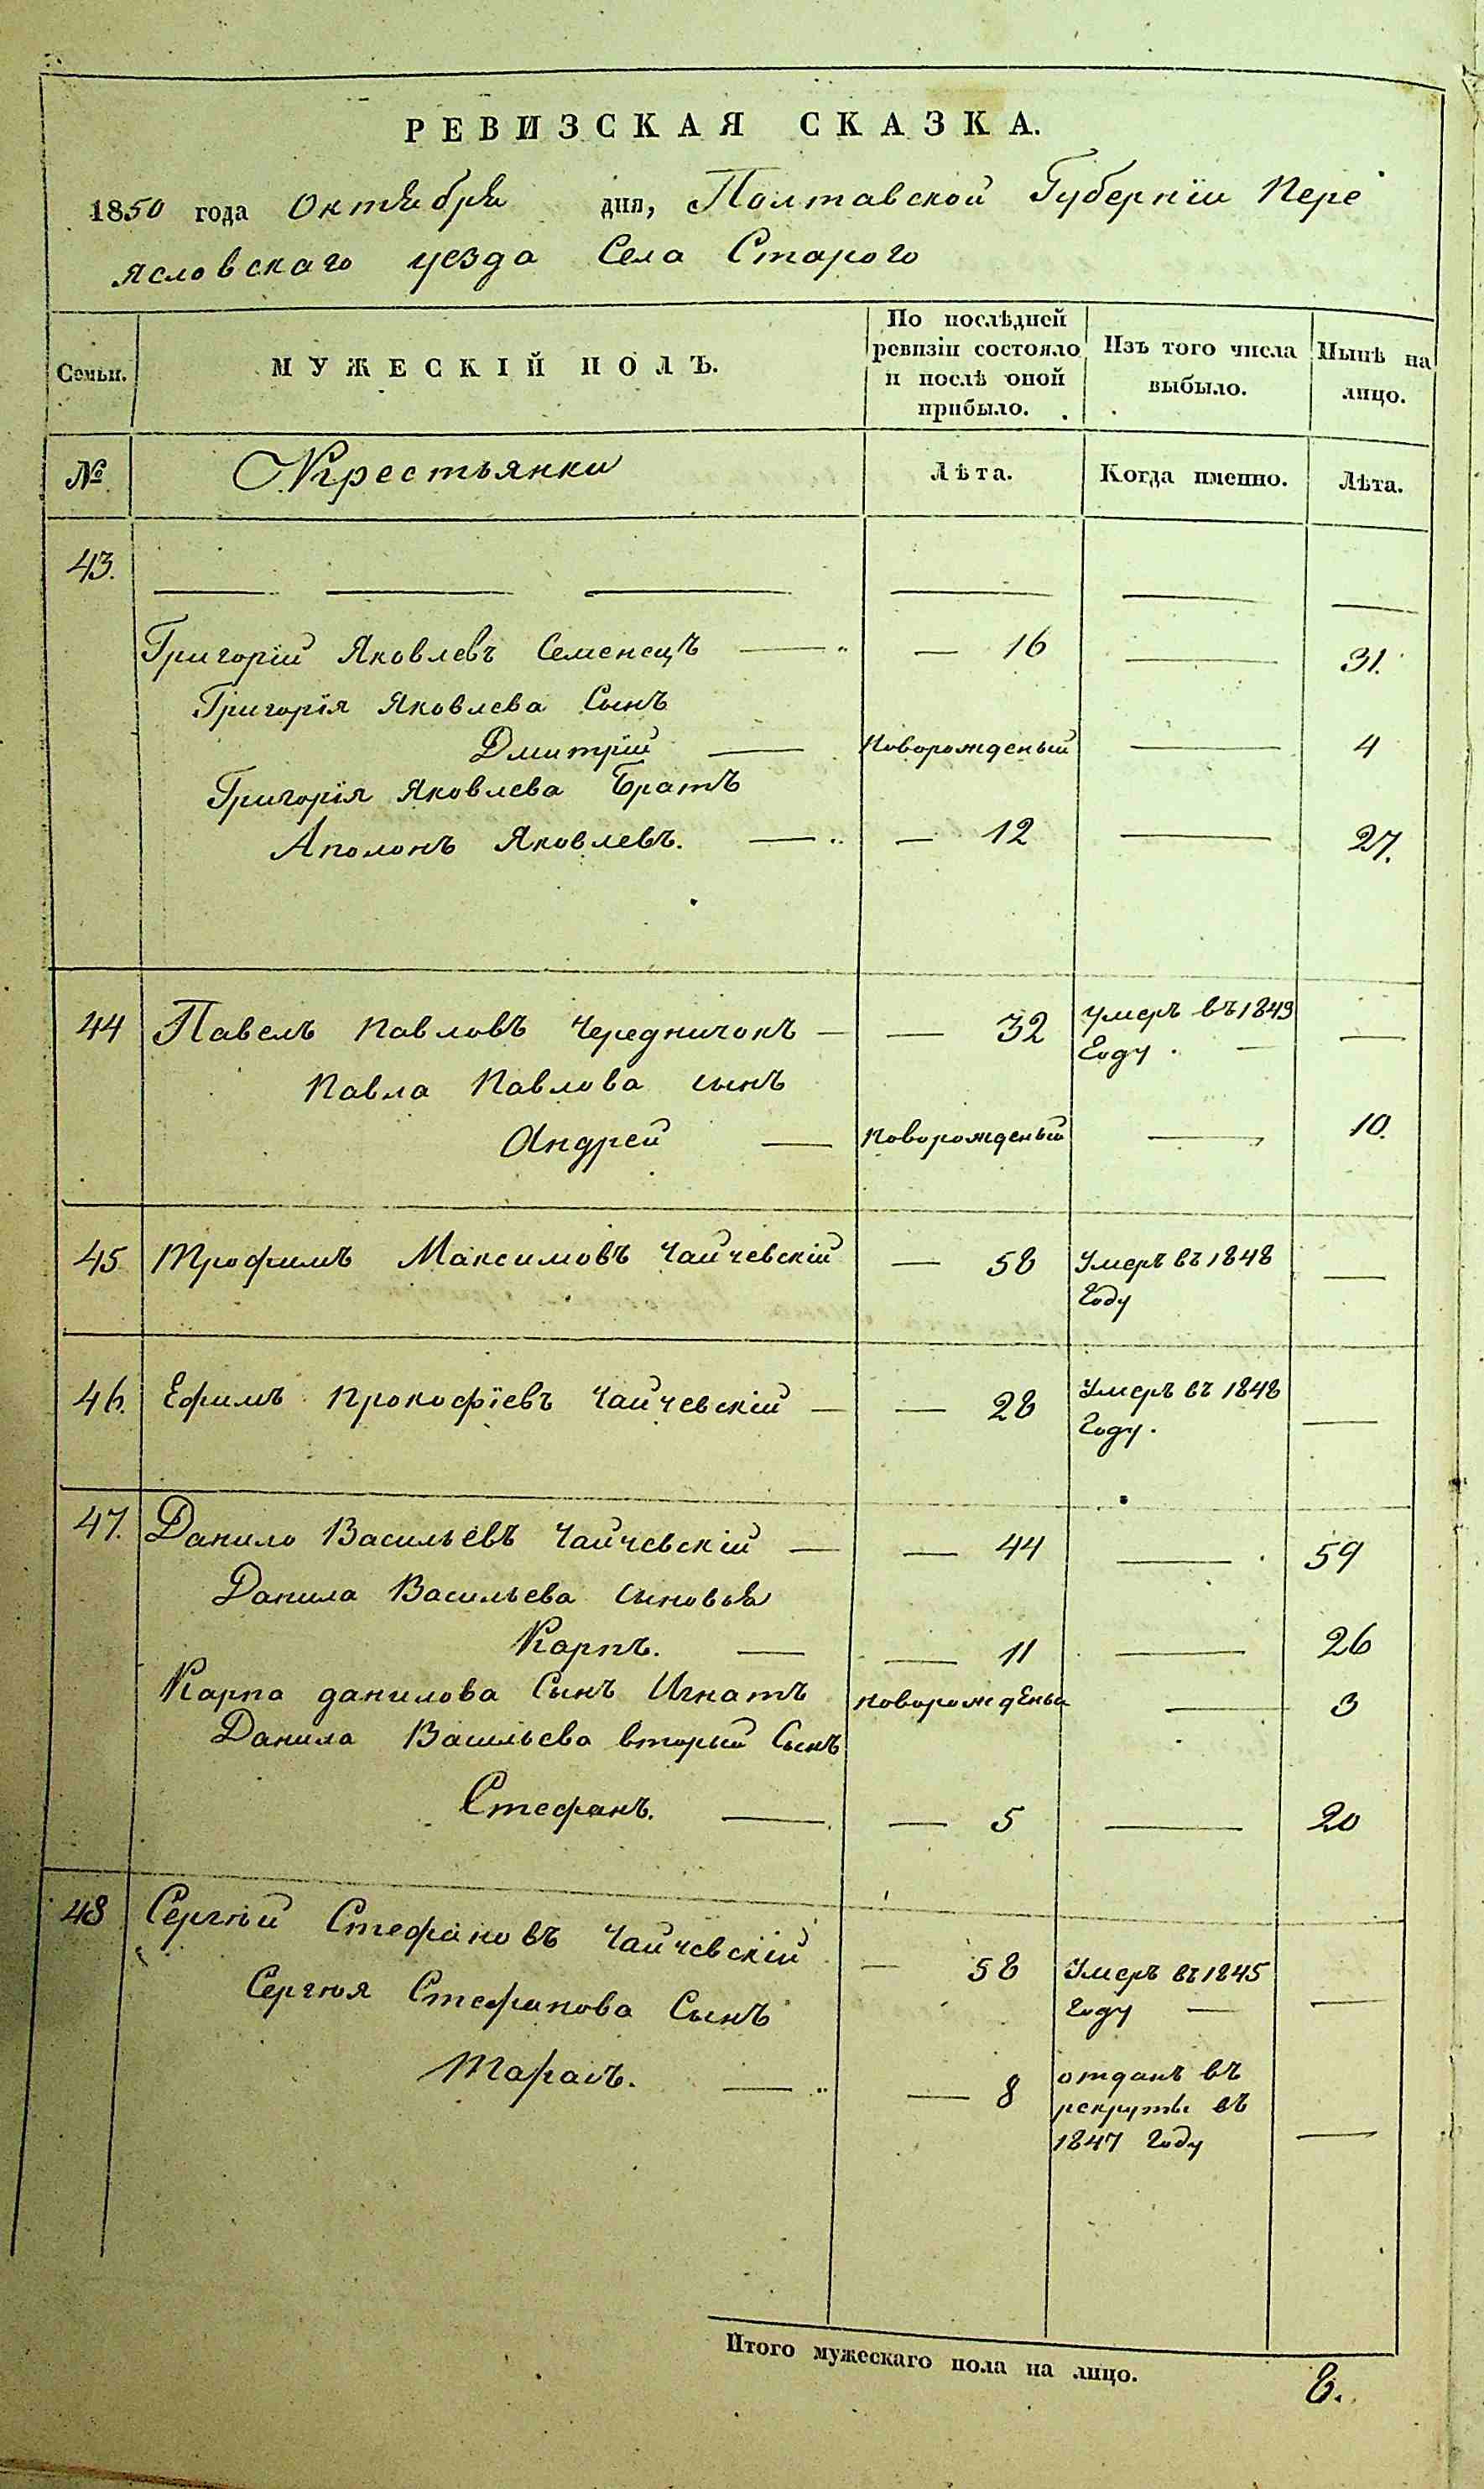 РЕВИЗСКАЯ СКАЗКА.
1850 года Октября дня, Полтавской Губернїи Пере
ясловскаго уезда Села Старого
Семьи.
МУЖЕСКІЙ ПОЛЪ.
По послѣдней
ревизіи состояло
и послѣ оной
прибыло.
Изъ того числа
выбыло.
Нынѣ на
лицо.
№ Крестьянки Лѣта. Когда именно. Лѣта.
43.
Григорій Яковлевъ Семенецъ — — 16 — 31.
Григорія Яковлева Сынъ
Дмитрій — Новорожденый — 4
Григорія Яковлева Братъ
Аполонъ Яковлевъ. — — 12 — 27.
44 Павелъ Павловъ Чередничокъ — — 32 Умеръ въ 1849 —
Году. —
Павла Павлова сынъ
Андрей — Новорожденый — 10.
45 Трофимъ Максимовъ Чайчевскій — 58 Умеръ въ 1848 —
Году
46. Ефимъ Прокофїевъ Чайчевскій — — 28 Умеръ въ 1848 —
Году.
47. Данило Васильевъ Чайчевскій — — 44 — 59
Данила Васильева сыновья
Карпъ. — — 11 — 26
Карпа данилова Сынъ Игнатъ новорожденый — 3
Данила Васильева вторый Сынъ
Стефанъ. — — 5 — 20
48 Сергѣй Стефановъ Чайчевскій — 58 Умеръ въ 1845
Году — —
Сергѣя Стефанова Сынъ
Тарасъ. — — 8 отданъ въ
рекруты въ
1847 Году —
Итого мужескаго пола на лицо. 8.